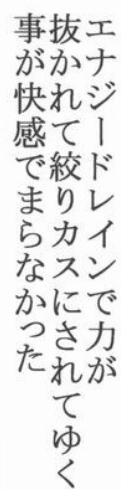 エナジードレインで力が
抜かれて絞りカスにされてゆく
事が快感でまらなかった